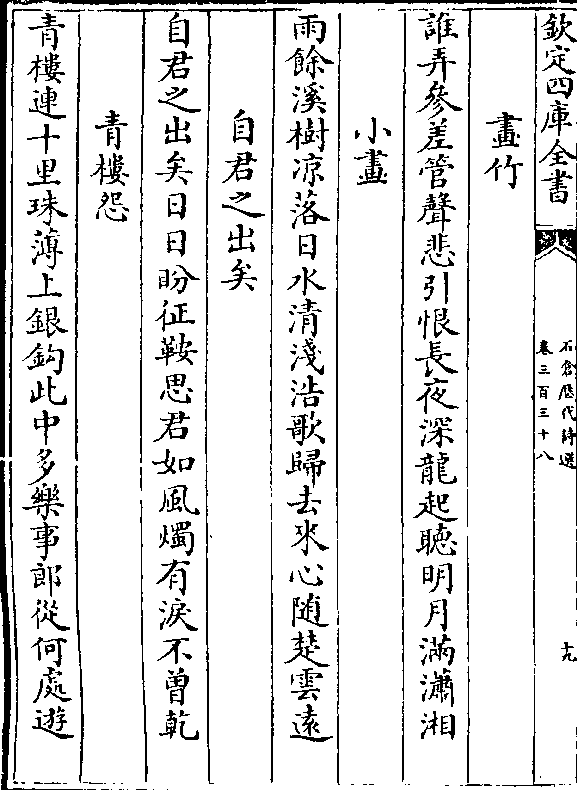 欽定四庫全書
石倉歷代詩選
卷三百三十八
十九
畫竹
誰弄參差管聲悲引恨長夜深龍起聽明月滿瀟湘
小畫
雨餘溪樹凉落日水清淺浩歌歸去來心随楚雲遠
自君之出矣
自君之出矣日日盼征鞍思君如風燭有淚不曾乾
青樓怨
青樓連十里珠薄上銀鈎此中多樂事郎從何處遊